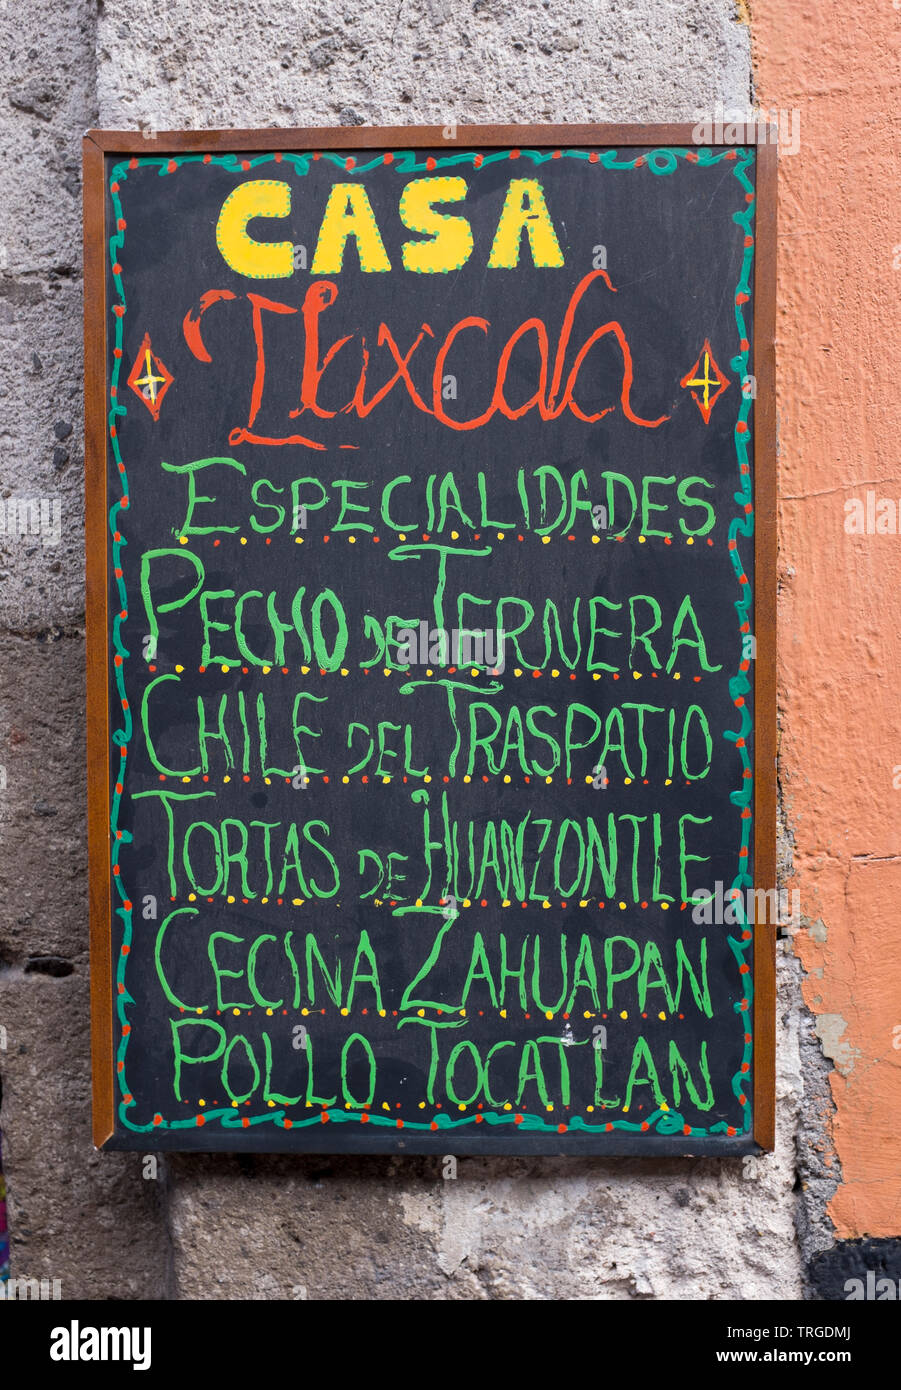 CASA
Tlaxcala
ESPECIALIDADES
PECHO DE TERNERA
CHILE DEL TRASPATIO
TORTAS DE HUANZONTLE
CECINA ZAHUAPAN
POLLO TOCATLAN
alamy
Image ID: TRGDMJ
www.alamy.com